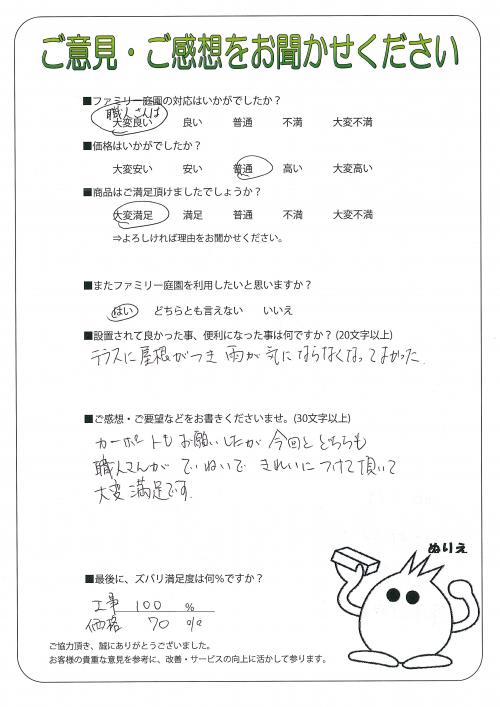 ご意見・ご感想をお聞かせください
■ファミリー庭園の対応はいかがでしたか？
職人さんは
大変良い 良い 普通 不満 大変不満
■価格はいかがでしたか？
大変安い 安い 普通 高い 大変高い
■商品はご満足頂けましたでしょうか？
大変満足 満足 普通 不満 大変不満
⇒よろしければ理由をお聞かせください。
■またファミリー庭園を利用したいと思いますか？
はい どちらとも言えない いいえ
■設置されて良かった事、便利になった事は何ですか？(20文字以上)
テラスに屋根がつき 雨が気にならなくなってよかった.
■ご感想・ご要望などをお書きくださいませ。(30文字以上)
カーポートも お願いしたが 今回と どちらも
職人さんが ていねいで きれいに つけて頂いて
大変満足です.
ぬりえ
■最後に、ズバリ満足度は何％ですか？
工事 100 %
価格 70 %
ご協力頂き、誠にありがとうございました。
お客様の貴重な意見を参考に、改善・サービスの向上に活かして参ります。